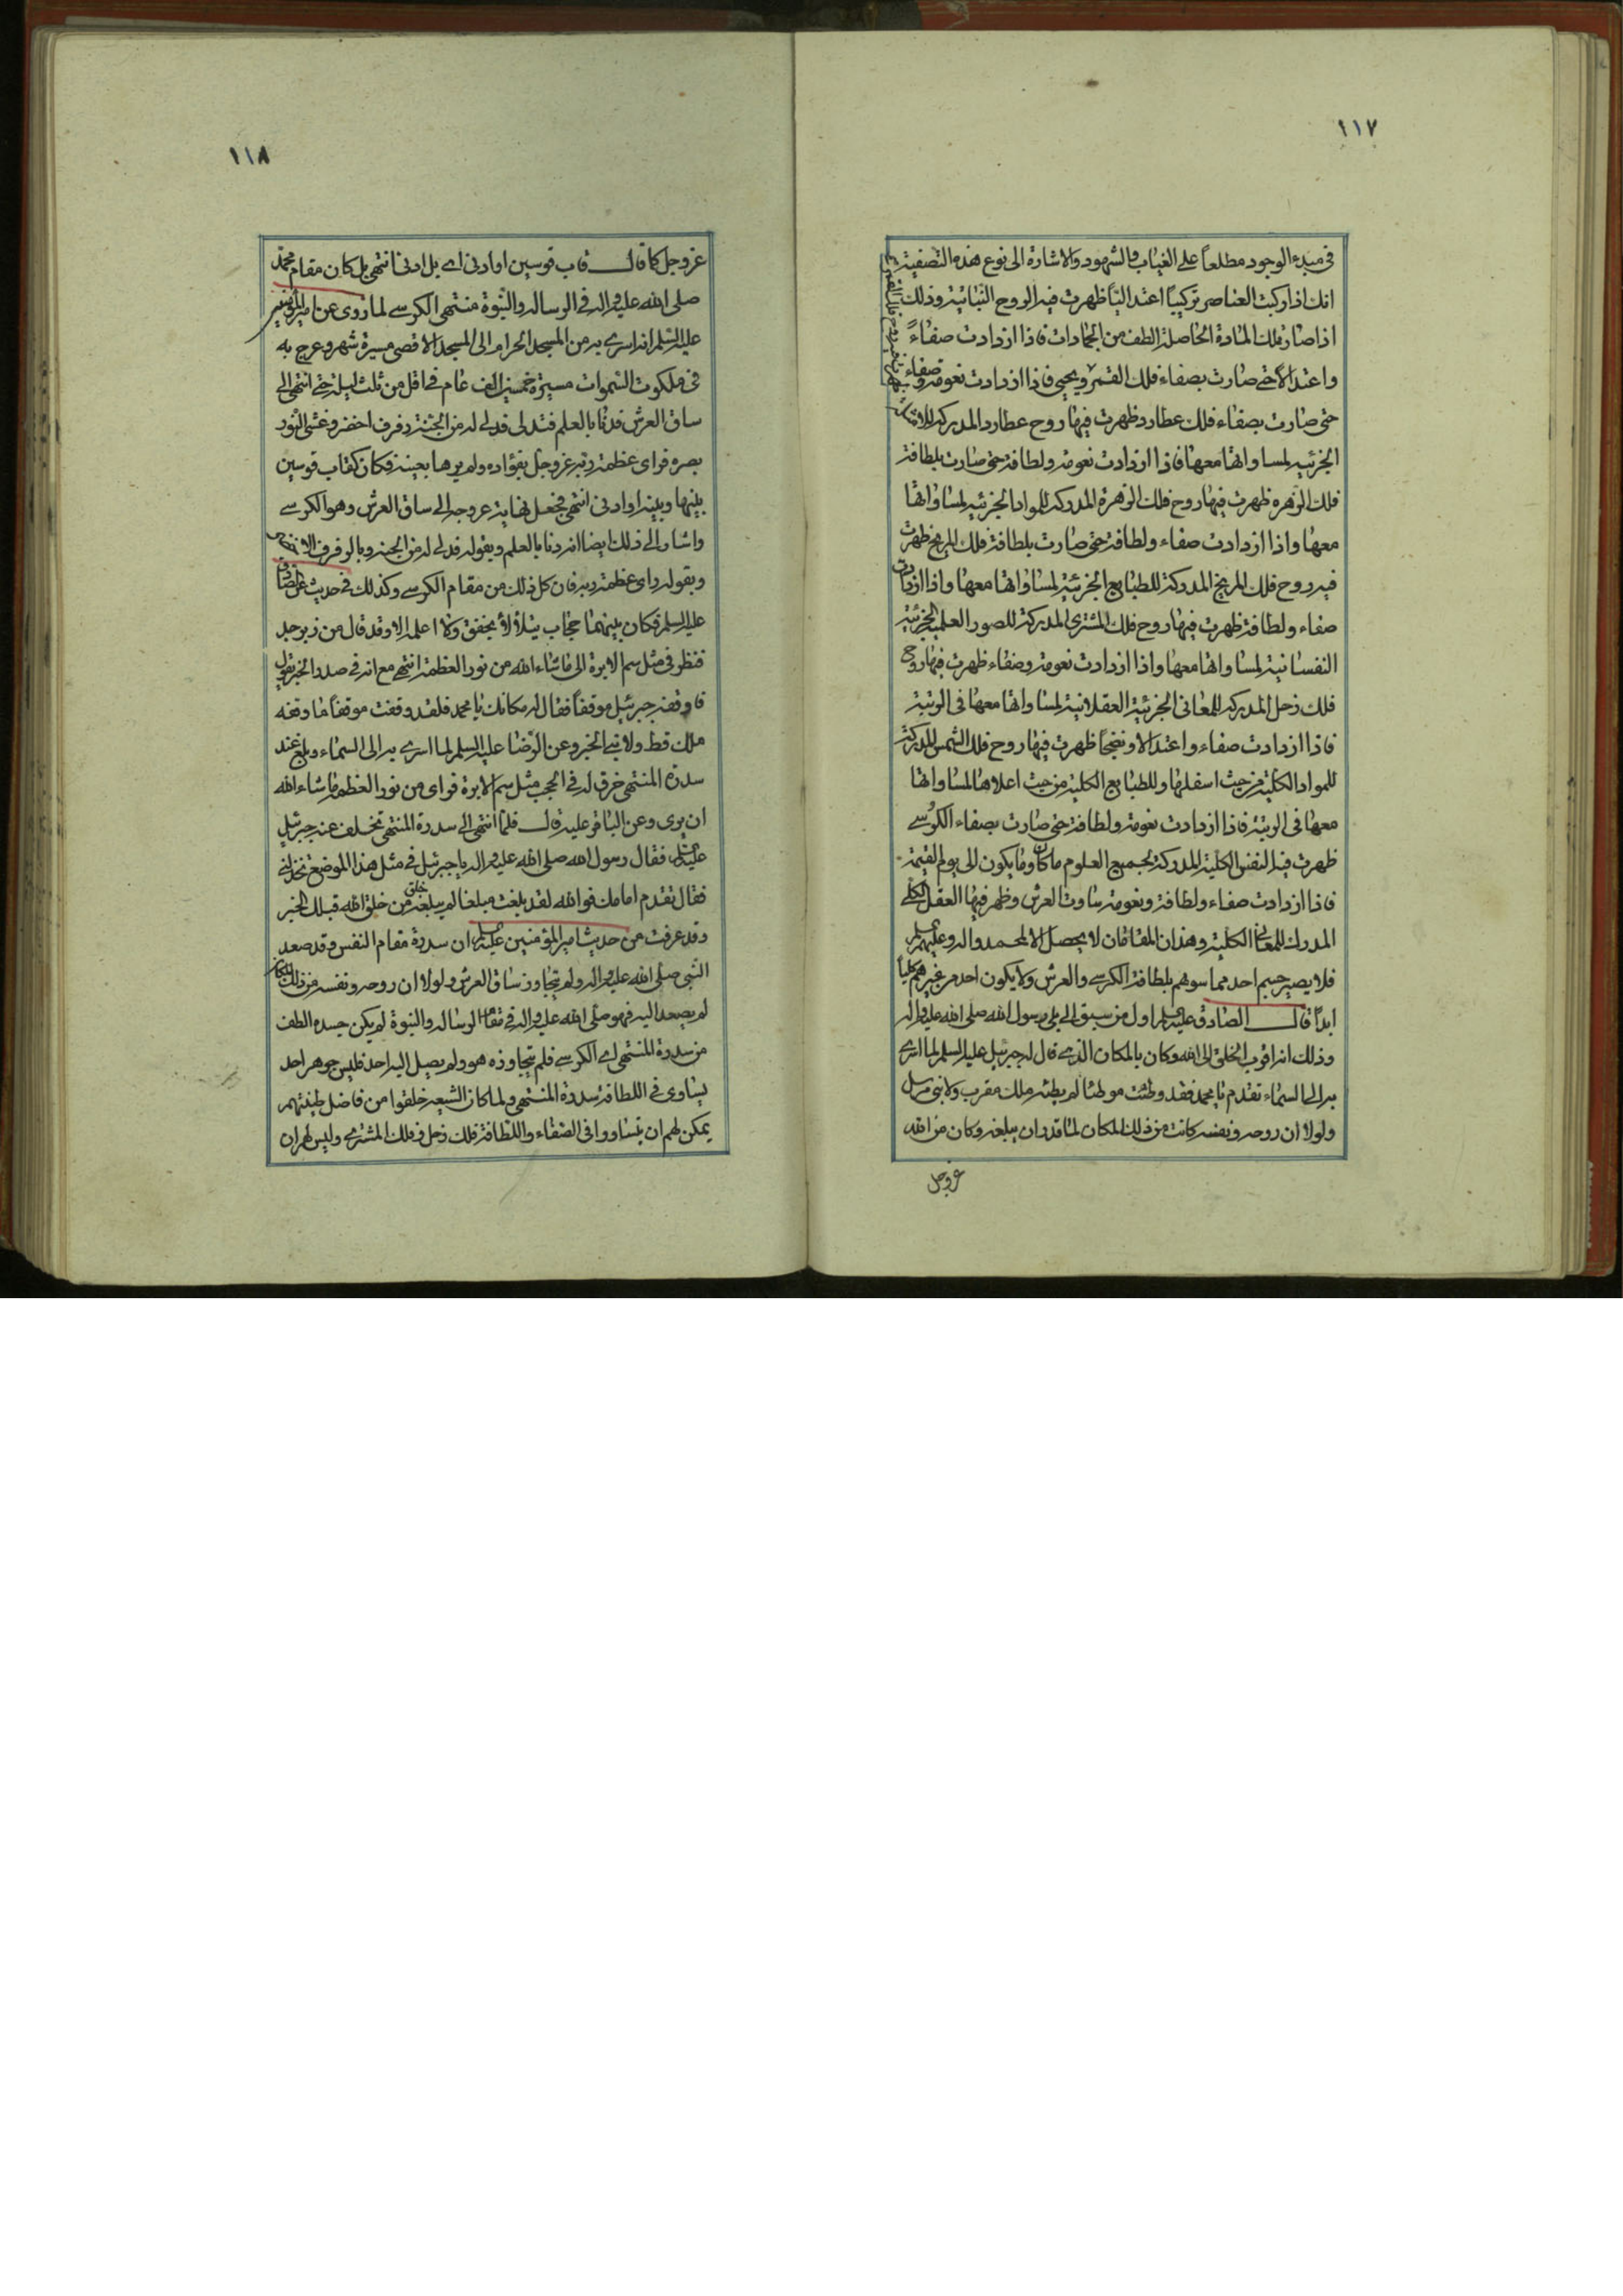 ١١٧
في مبدء الوجود مطلعاً على الغياب والشهود والاشارة الى نوع هذه التصفية
انك اذا ركبت العناصر تركيباً اعتدالياً ظهرت فيه الروح النباتية وذلك
اذا صار تلك المادة الحاصلة الطف من الجمادات فاذا ازدادت صفاءً
واعتدالاً حتى صارت بصفاء فلك القمر ويحيى فاذا ازدادت نعومة وصفاء
حتى صارت بصفاء فلك عطارد ظهرت فيها روح عطارد المدركة
الجزئية لمساواتها معها فاذا ازدادت نعومة ولطافة حتى صارت بلطافة
فلك الزهرة ظهرت فيها روح فلك الزهرة المدركة للمواد الجزئية لمساواتها
معها واذا ازدادت صفاء ولطافة حتى صارت بلطافة فلك المريخ ظهرت
فيه روح فلك المريخ المدركة للطبايع الجزئية لمساواتها معها واذا ازدادت
صفاء ولطافة ظهرت فيها روح فلك المشترى المدركة للصور العلمية الجزئية
النفسانية لمساواتها معها واذا ازدادت نعومة وصفاء ظهرت فيها روح
فلك زحل المدركة للمعاني الجزئية العقلانية لمساواتها معها في الرتبة
فاذا ازدادت صفاء واعتدالا ونضجاً ظهرت فيها روح فلك الشمس المدركة
للمواد الكلية من حيث اسفلها وللطبايع الكلية من حيث اعلاها لمساواتها
معها في الرتبة فاذا ازدادت نعومة ولطافة حتى صارت بصفاء الكرسي
ظهرت فيه النفس الكلية المدركة لجميع العلوم ما كان وما يكون الى يوم القيمة
فاذا ازدادت صفاء ولطافة ونعومة ساوت العرش وظهر فيها العقل الكلي
المدرك للمعاني الكلية وهذان المقامان لا يحصل الا لمحمد واله وعليهم السلم
فلا يصير جسم احد مما سوهم بلطافة الكرسي والعرش ولا يكون احد من غيرهم كلياً
ابداً قال الصادق عليه السلم اول من سبق الى بلى رسول الله صلى الله عليه واله
وذلك انه اقرب الخلق الى الله وكان بالمكان الذي قال له جبرئيل عليه السلم لما اسري
به الى السماء تقدم يا محمد فقد وطئت موطئا لم يطئه ملك مقرب ولا نبي مرسل
ولولا ان روحه ونفسه كانت من ذلك المكان لما قدر ان يبلغه وكان من الله
عز وجل
١١٨
عز وجل كما قال قاب قوسين او ادنى اي بل ادنى انتهى بل كان مقام محمد
صلى الله عليه واله في الرسالة والنبوة منتهى الكرسي لما روى عن امير المؤمنين
عليه السلم انه اسري به من المسجد الحرام الى المسجد الاقصى مسيرة شهر وعرج به
في ملكوت السموات مسيرة خمسين الف عام في اقل من ثلث ليلة حتى انتهى الى
ساق العرش فدنا بالعلم فتدلى فدلى له من الجنة رفرف اخضر وغشى النور
بصره فراى عظمة ربه عز وجل بفؤاده ولم يرها بعينه فكان كقاب قوسين
بينها وبينه او ادنى انتهى فجعل نهاية عروجه الى ساق العرش وهو الكرسي
واشار الى ذلك ايضا انه دنا بالعلم وبقوله فدلى له من الجنة وبالرفرف الاخضر
وبقوله راى عظمة ربه فان كل ذلك من مقام الكرسي وكذلك في حديث عن الصادق
عليه السلم فكان بينهما حجاب يتلألأ بخفق ولا اعلمه الا وقد قال من زبرجد
فنظر في مثل سم الابرة الى ما شاء الله من نور العظمة انتهى مع انه في صدر الخبر يقول
فاوقفه جبرئيل موقفاً فقال له مكانك يا محمد فلقد وقفت موقفاً ما وقفه
ملك قط ولا نبي الخبر وعن الرضا عليه السلم لما اسري به الى السماء وبلغ عند
سدرة المنتهى خرق له في الحجب مثل سم الابرة فراى من نور العظمة ما شاء الله
ان يرى وعن الباقر عليه قال فلما انتهى الى سدرة المنتهى تخلف عنه جبرئيل
عليه السلم فقال رسول الله صلى الله عليه واله يا جبرئيل في مثل هذا الموضع تخذلني
فقال تقدم امامك فوالله لقد بلغت مبلغا لم يبلغه خلق من خلق الله قبلك الخبر
وقد عرفت من حديث امير المؤمنين عليه السلم ان سدرة مقام النفس وقد صعد
النبي صلى الله عليه واله ولم يتجاوز ساق العرش ولولا ان روحه ونفسه من ذلك المكان
لم يصعد اليه فهو صلى الله عليه واله في مقام الرسالة والنبوة لم يكن جسده الطف
من سدرة المنتهى اي الكرسي فلم يتجاوزه هو ولم يصل اليه احد فليس جوهر احد
يساوى في اللطافة سدرة المنتهى ولما كان الشيعة خلقوا من فاضل طينتهم
يمكن لهم ان يتساووا في الصفاء واللطافة فلك زحل فلك المشتري وليس لهم ان